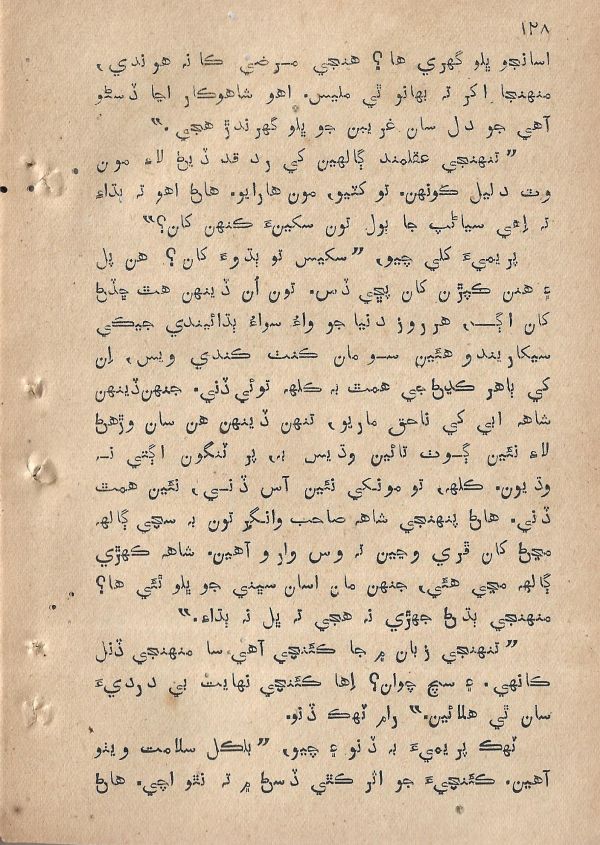 ١٢٨
اسانجو ڀلو گهري ها؟ هنجي مرضي ڪانہ هوندي،
منهنجا اکر تہ بهانو ٿي مليس. اهو شاهوڪار اڃا ڏسڻو
آهي جو دل سان غريبن جو ڀلو گهرندڙ هجي.”
”تنهنجي عقلمند ڳالهين کي رد قد ڏيڻ لاءِ مون
وٽ دليل ڪونهن. تو کٽيو، مون هارايو. هاڻ اهو تہ ٻڌاءِ
تہ اِهي سياڻپ جا ٻول تون سکينءَ ڪنهن کان؟”
پريميءَ کلي چيو، ”سکيس تو ٻڌوءَ کان؟ هن پل
۽ هنن ڪپڙن کان پڇي ڏس. تون اُن ڏينهن هٿ ڇڏڻ
کان اڳ، هرروز دنيا جو واءُ سواءُ ٻڌائيندي جيڪي
سيکاريندو هئين سو مان کنٽ ڪندي ويس، اِن
کي ٻاهر ڪڍڻ جي همت بہ ڪلهہ توئي ڏني. جنهن ڏينهن
شاهہ ابي کي ناحق ماريو، تنهن ڏينهن هن سان وڙهڻ
لاءِ نئين ڳوٺ تائين وڌيس بہ، پر ٽنگون اڳتي نہ
وڌيون. ڪلهہ تو مونکي نئين آس ڏني، نئين همت
ڏني. هاڻ پنهنجي شاهہ صاحب وانگر تون بہ سچي ڳالهہ
مڃڻ کان ڦري وڃين تہ وس وارو آهين. شاهہ ڪهڙي
ڳالهہ مڃي هئي، جنهن مان اسان سڀني جو ڀلو ٿئي ها؟
منهنجي ٻڌڻ جهڙي نہ هجي تہ ڀل نہ ٻڌاءِ.”
”تنهنجي زبان ۾ جا ڪئنچي آهي سا منهنجي ڏنل
ڪانهي. ۽ سچ چوان؟ اِها ڪئنچي نهايت بي درديءَ
سان ٿي هلائين.” رام ٽهڪ ڏنو.
ٽهڪ پريميءَ بہ ڏنو ۽ چيو، ”بلڪل سلامت ويٺو
آهين. ڪئنچيءَ جو اثر ڪٿي ڏسڻ ۾ تہ نٿو اچي. هاڻ